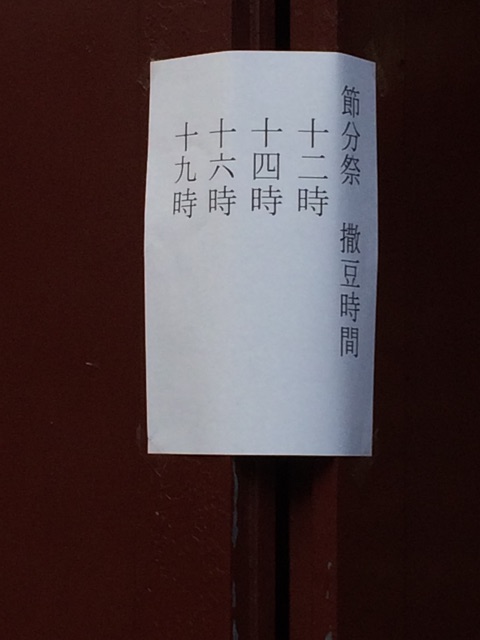 節分祭　撒豆時間
十二時
十四時
十六時
十九時